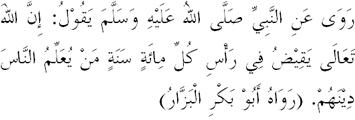 رَوَى عَنِ النَّبِيِّ صَلَّى اللهُ عَلَيْهِ وَسَلَّمَ يَقُوْلُ: إِنَّ اللهَ
تَعَالَى يَقِيْضُ فِي رَأْسِ كُلِّ مِائَةٍ سَنَةٍ مَنْ يُعَلِّمُ النَّاسَ
دِيْنَهُمْ. (رَوَاهُ أَبُوْ بَكْرٍ الْبَزَّارُ)